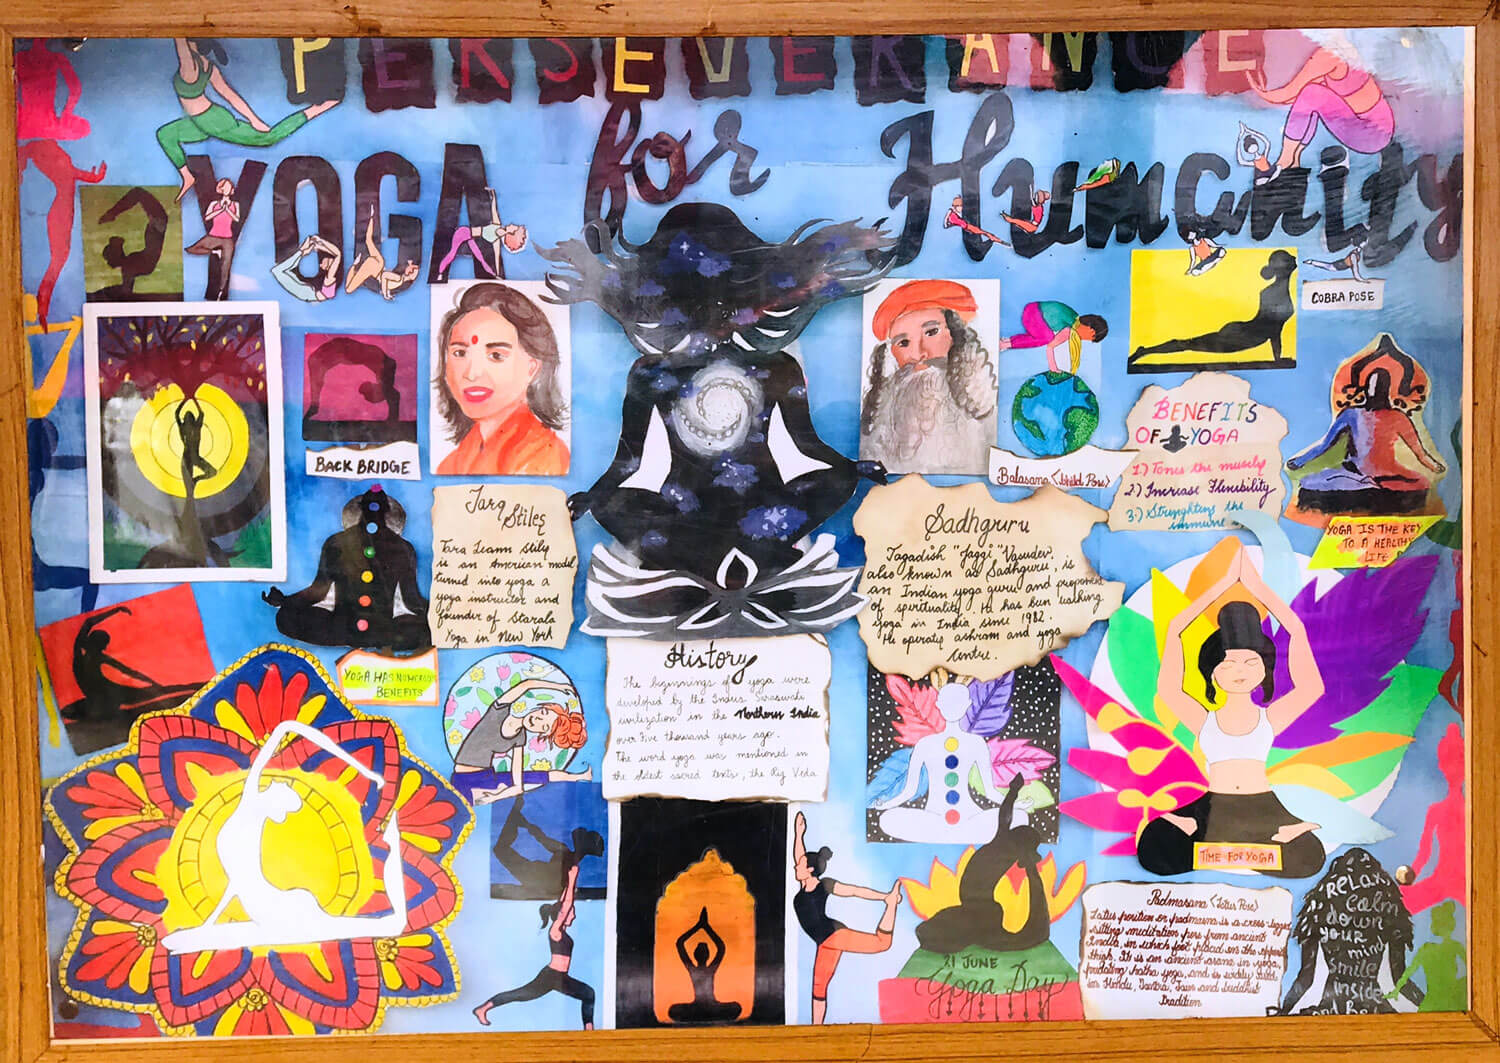 PERSEVERANCE
YOGA for Humanity
COBRA POSE
BACK BRIDGE
Balasana (child Pose)
BENEFITS
OF YOGA
1.) Tones the muscle
2) Increase Flexibility
3.) Strenghtens the
immune
YOGA IS THE KEY
TO A HEALTHY
LIFE
Tara
Stiles
Tara Leann Stiles
is an American model
turned into yoga a
yoga instructor and
founder of Starala
Yoga in New York
Sadhguru
Jagadish "Jaggi" Vasudev,
also known as Sadhguru, is
an Indian yoga guru and proponent
of spirituality. He has been teaching
yoga in India since 1982.
He operates ashram and yoga
centre.
YOGA HAS NUMEROUS
BENEFITS
History
The beginnings of yoga were
developed by the Indus Saraswati
civilization in the Northern India
over Five thousand years ago.
The word yoga was mentioned in
the oldest sacred texts, the Rig Veda
TIME FOR YOGA
21 JUNE
Yoga Day
Padmasana (Lotus Pose)
Lotus position or padmasana is a cross-legged
sitting meditation pose from ancient
India, in which foot placed on the opposite
thigh. It is an ancient asana in yoga,
predating hatha yoga, and is widely
Hindu, Tantra, Jain and buddhist
Tradition
RELAX,
Calm
down
your
mind
smile
inside
and